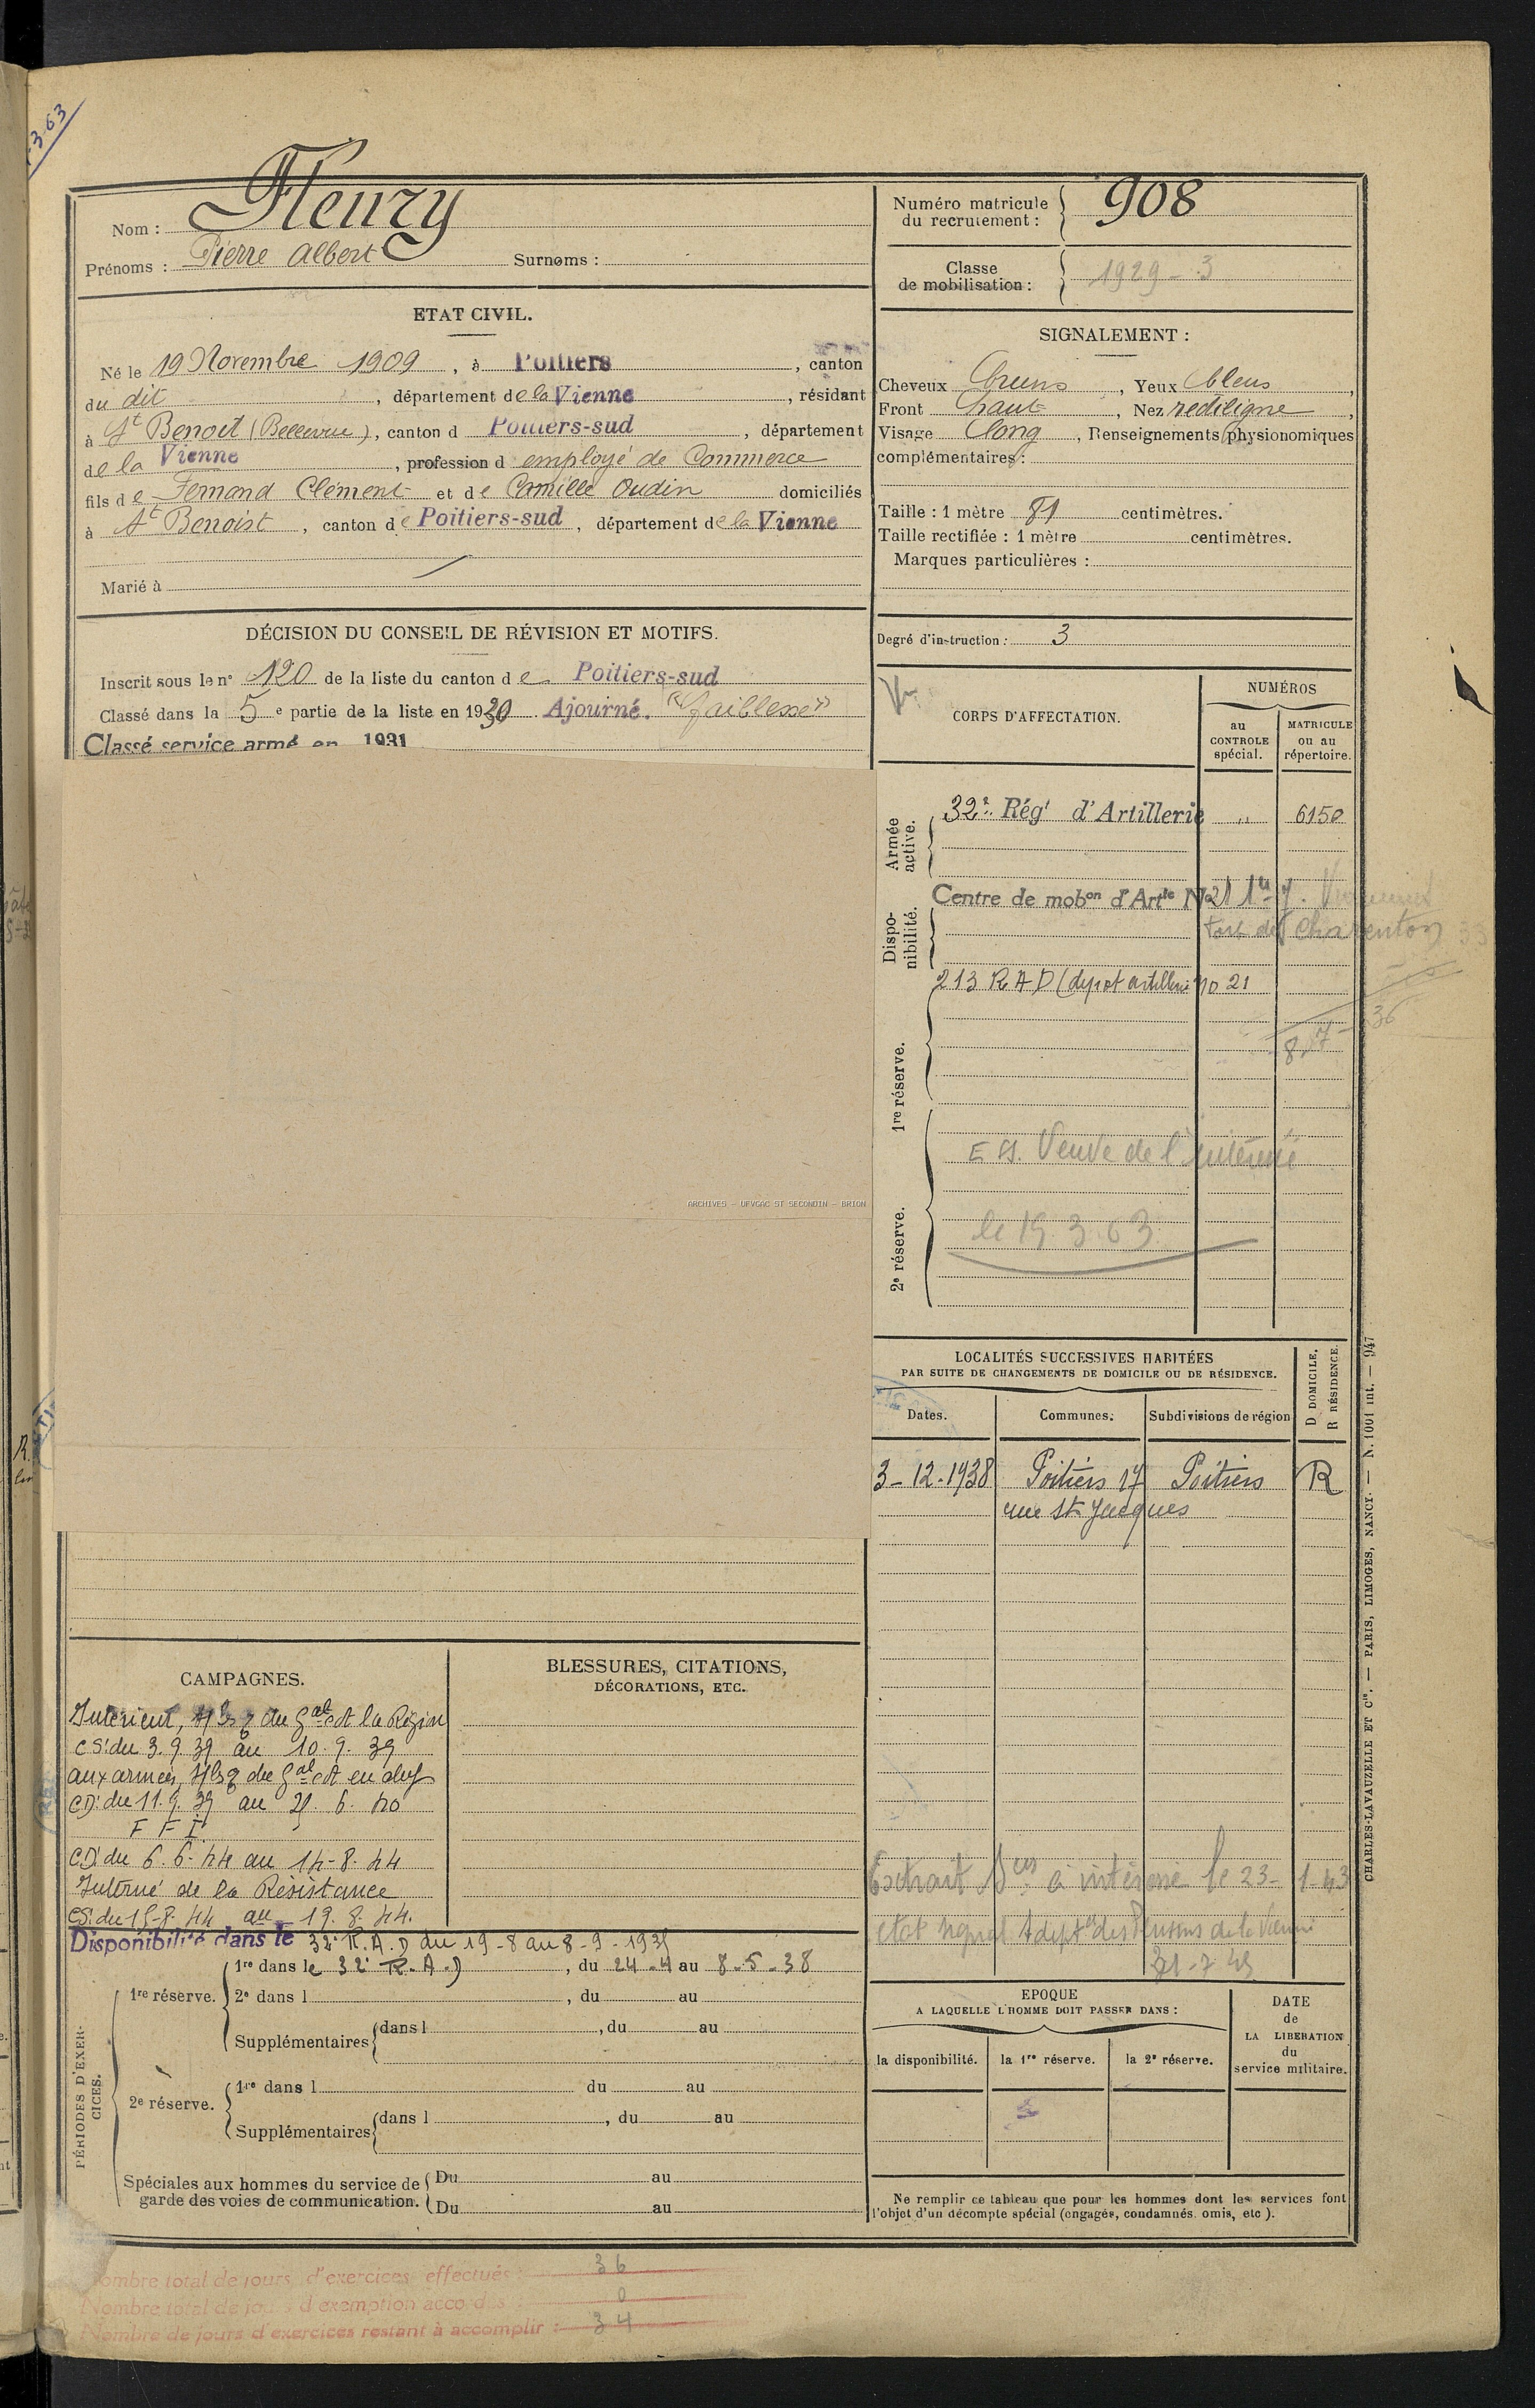 3.63
Nom : Fleury
Prénoms : Pierre Albert Surnoms :
ETAT CIVIL.
Né le 19 Novembre 1909, à Poitiers, canton
du dit, département de la Vienne, résidant
à St Benoit (Bellevue), canton d Poitiers-sud, département
de la Vienne, profession d employé de Commerce
fils de Fernand Clément et de Camille Oudin domiciliés
à St Benoist, canton de Poitiers-sud, département de la Vienne
Marié à
DÉCISION DU CONSEIL DE RÉVISION ET MOTIFS.
Inscrit sous le n° 120 de la liste du canton de Poitiers-sud
Classé dans la 5e partie de la liste en 1930 Ajourné. "faiblesse"
Classé service armé en 1931
ARCHIVES - UFVGAC ST SECONDIN - BRION
CAMPAGNES.
Intérieur, du Gal cdt la Région
CS: du 3.9.39 au 10.9.39
aux armées, du Gal cdt en
CD: du 11.9.39 au 21.6.40
F F I
CD: du 6.6.44 au 14-8.44
Interné de la Résistance
CS: du 15-8.44 au 19.8.44.
BLESSURES, CITATIONS,
DÉCORATIONS, ETC.
Disponibilité dans le 32e R.A.D du 19-8 au 8-9-1935
PÉRIODES D'EXERCICES.
1re réserve.
1re dans le 32e R.A.D, du 24-4 au 8-5-38
2e dans l, du au
Supplémentaires dans l, du au
2e réserve.
1re dans l du au
Supplémentaires dans l, du au
Spéciales aux hommes du service de Du au
garde des voies de communication. Du au
Nombre total de jours d'exercices effectués : 36
Nombre total de jours d'exemption accordés : 0
Nombre de jours d'exercices restant à accomplir : 34
Numéro matricule
du recrutement : 908
Classe
de mobilisation : 1929-3
SIGNALEMENT :
Cheveux bruns, Yeux bleus,
Front haut, Nez rectiligne,
Visage long, Renseignements physionomiques
complémentaires :
Taille : 1 mètre 81 centimètres.
Taille rectifiée : 1 mètre centimètres.
Marques particulières :
Degré d'instruction : 3
CORPS D'AFFECTATION.
NUMÉROS
au
CONTROLE
spécial.
MATRICULE
ou au
répertoire.
Armée
active.
32e Régt d'Artillerie " 6150
Dispo-
nibilité.
Centre de mobon d'Artie No 21
Fort de Charenton
213 R A D (depot artillerie no 21
8-7-36
1re réserve.
E S. Veuve de l'intéressé
le 19.3.63
2e réserve.
LOCALITÉS SUCCESSIVES HABITÉES
PAR SUITE DE CHANGEMENTS DE DOMICILE OU DE RÉSIDENCE.
Dates.
Communes.
Subdivisions de région
D DOMICILE.
R RÉSIDENCE.
3-12-1938 Poitiers 17 Poitiers R
rue St Jacques
Extrait Sces à intéressé le 23-1-43
etat signal. dept des Pensions de la Vienne
21-7-49
EPOQUE
A LAQUELLE L'HOMME DOIT PASSER DANS :
la disponibilité.
la 1re réserve.
la 2e réserve.
DATE
de
LA LIBERATION
du
service militaire.
Ne remplir ce tableau que pour les hommes dont les services font
l'objet d'un décompte spécial (engagés, condamnés, omis, etc).
CHARLES-LAVAUZELLE ET Cie. — PARIS, LIMOGES, NANCY. — N. 1001 int. — 947